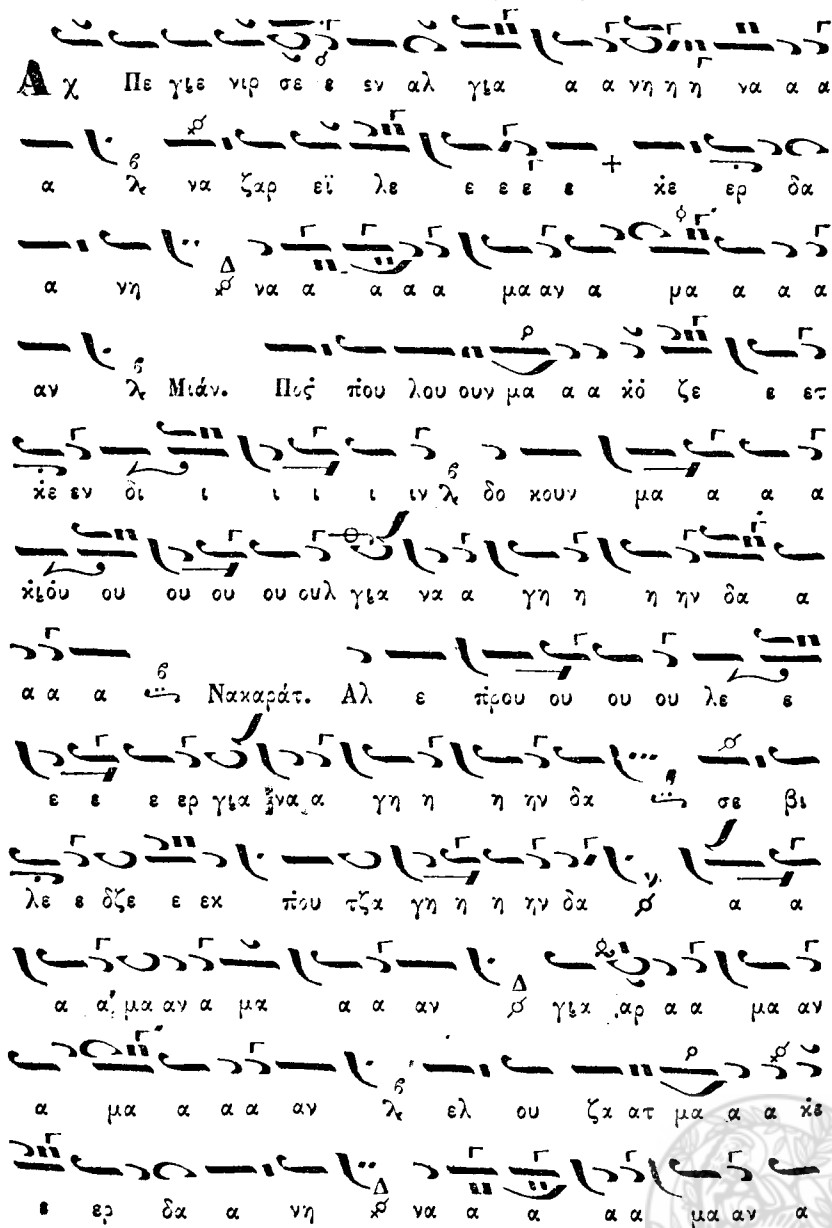 Αχ Πε γιε νιρ σε ε εν αλ για α α νη η η να α α
α να ζαρ εϊ λε ε ε ε ε κε ερ δα
α νη Δ να α α α α μα αν α μα α α α
αν Μιάν. Πος που λου ουν μα α α κό ζε ε ετ
κε εν δι ι ι ι ι ιν δο κουν μα α α α
κιού ου ου ου ου ουλ για να α γη η η ην δα α
α α α Νακαράτ. Αλ ε πρου ου ου ου λε ε
ε ε ε ερ για να α γη η η ην δα σε βι
λε ε δζε ε εκ που τζα γη η η ην δα α α
α α μα αν α μα α α αν Δ για αρ α α μα αν
α μα α α α αν ελ ου ζα ατ μα α α κε
ε ερ δα α νη Δ να α α α α μα αν α